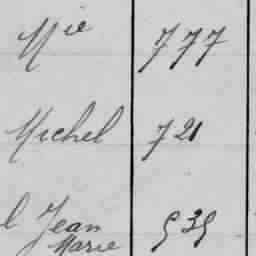 Mie 777
Michel 721
l Jean 535
Marie